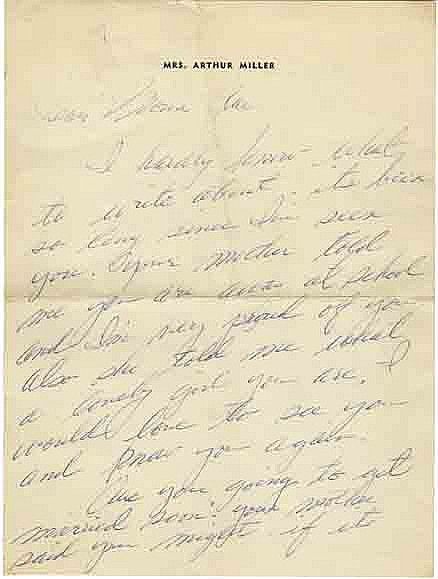 MRS. ARTHUR MILLER
Dear Mona Rae
I hardly know what
to write about, its been
so long since I've seen
you. Your mother told
me you are away at school
and I'm very proud of you
also she told me what
a lovely girl you are. I
would love to see you
and know you again.
Are you going to get
married soon? your mother
said you might if its